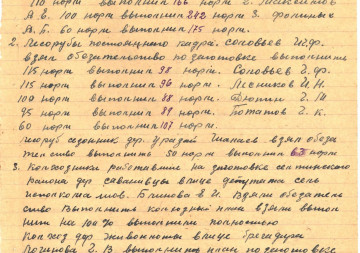 110 норм выполнил 166 норм 2.
А.Е. 100 норм выполнил 242 норм 3. Фоминых
А.Б. 60 норм выполнил 175 норм.
2. Лесорубы постоянного кадра. Соловьев И.Ф.
взял обязательство по заготовке выполнить
115 норм выполнил 98 норм. Соловьев Г.Ф.
115 норм выполнил 96 норм. Лесников И.Н.
100 норм выполнил 88 норм. Дютин Г.М
95 норм выполнил 88 норм. Потапов Г.К.
60 норм выполнил 107 норм.
лесоруб сезонник дер. Уразай взял обяза
тельство выполнить 50 норм выполнил 65 норм
3. Колхозники работавшие на заготовке
района дер. в лице депутата сель
исполкома тов. Блинова В.И. Взяли обязатель
ство Выполнить колхозный план взяли выпол
нить на 100% выполнили полностью
Колхоз дер Живаконты в лице бригадира
Г.В. выполнить план по заготовке